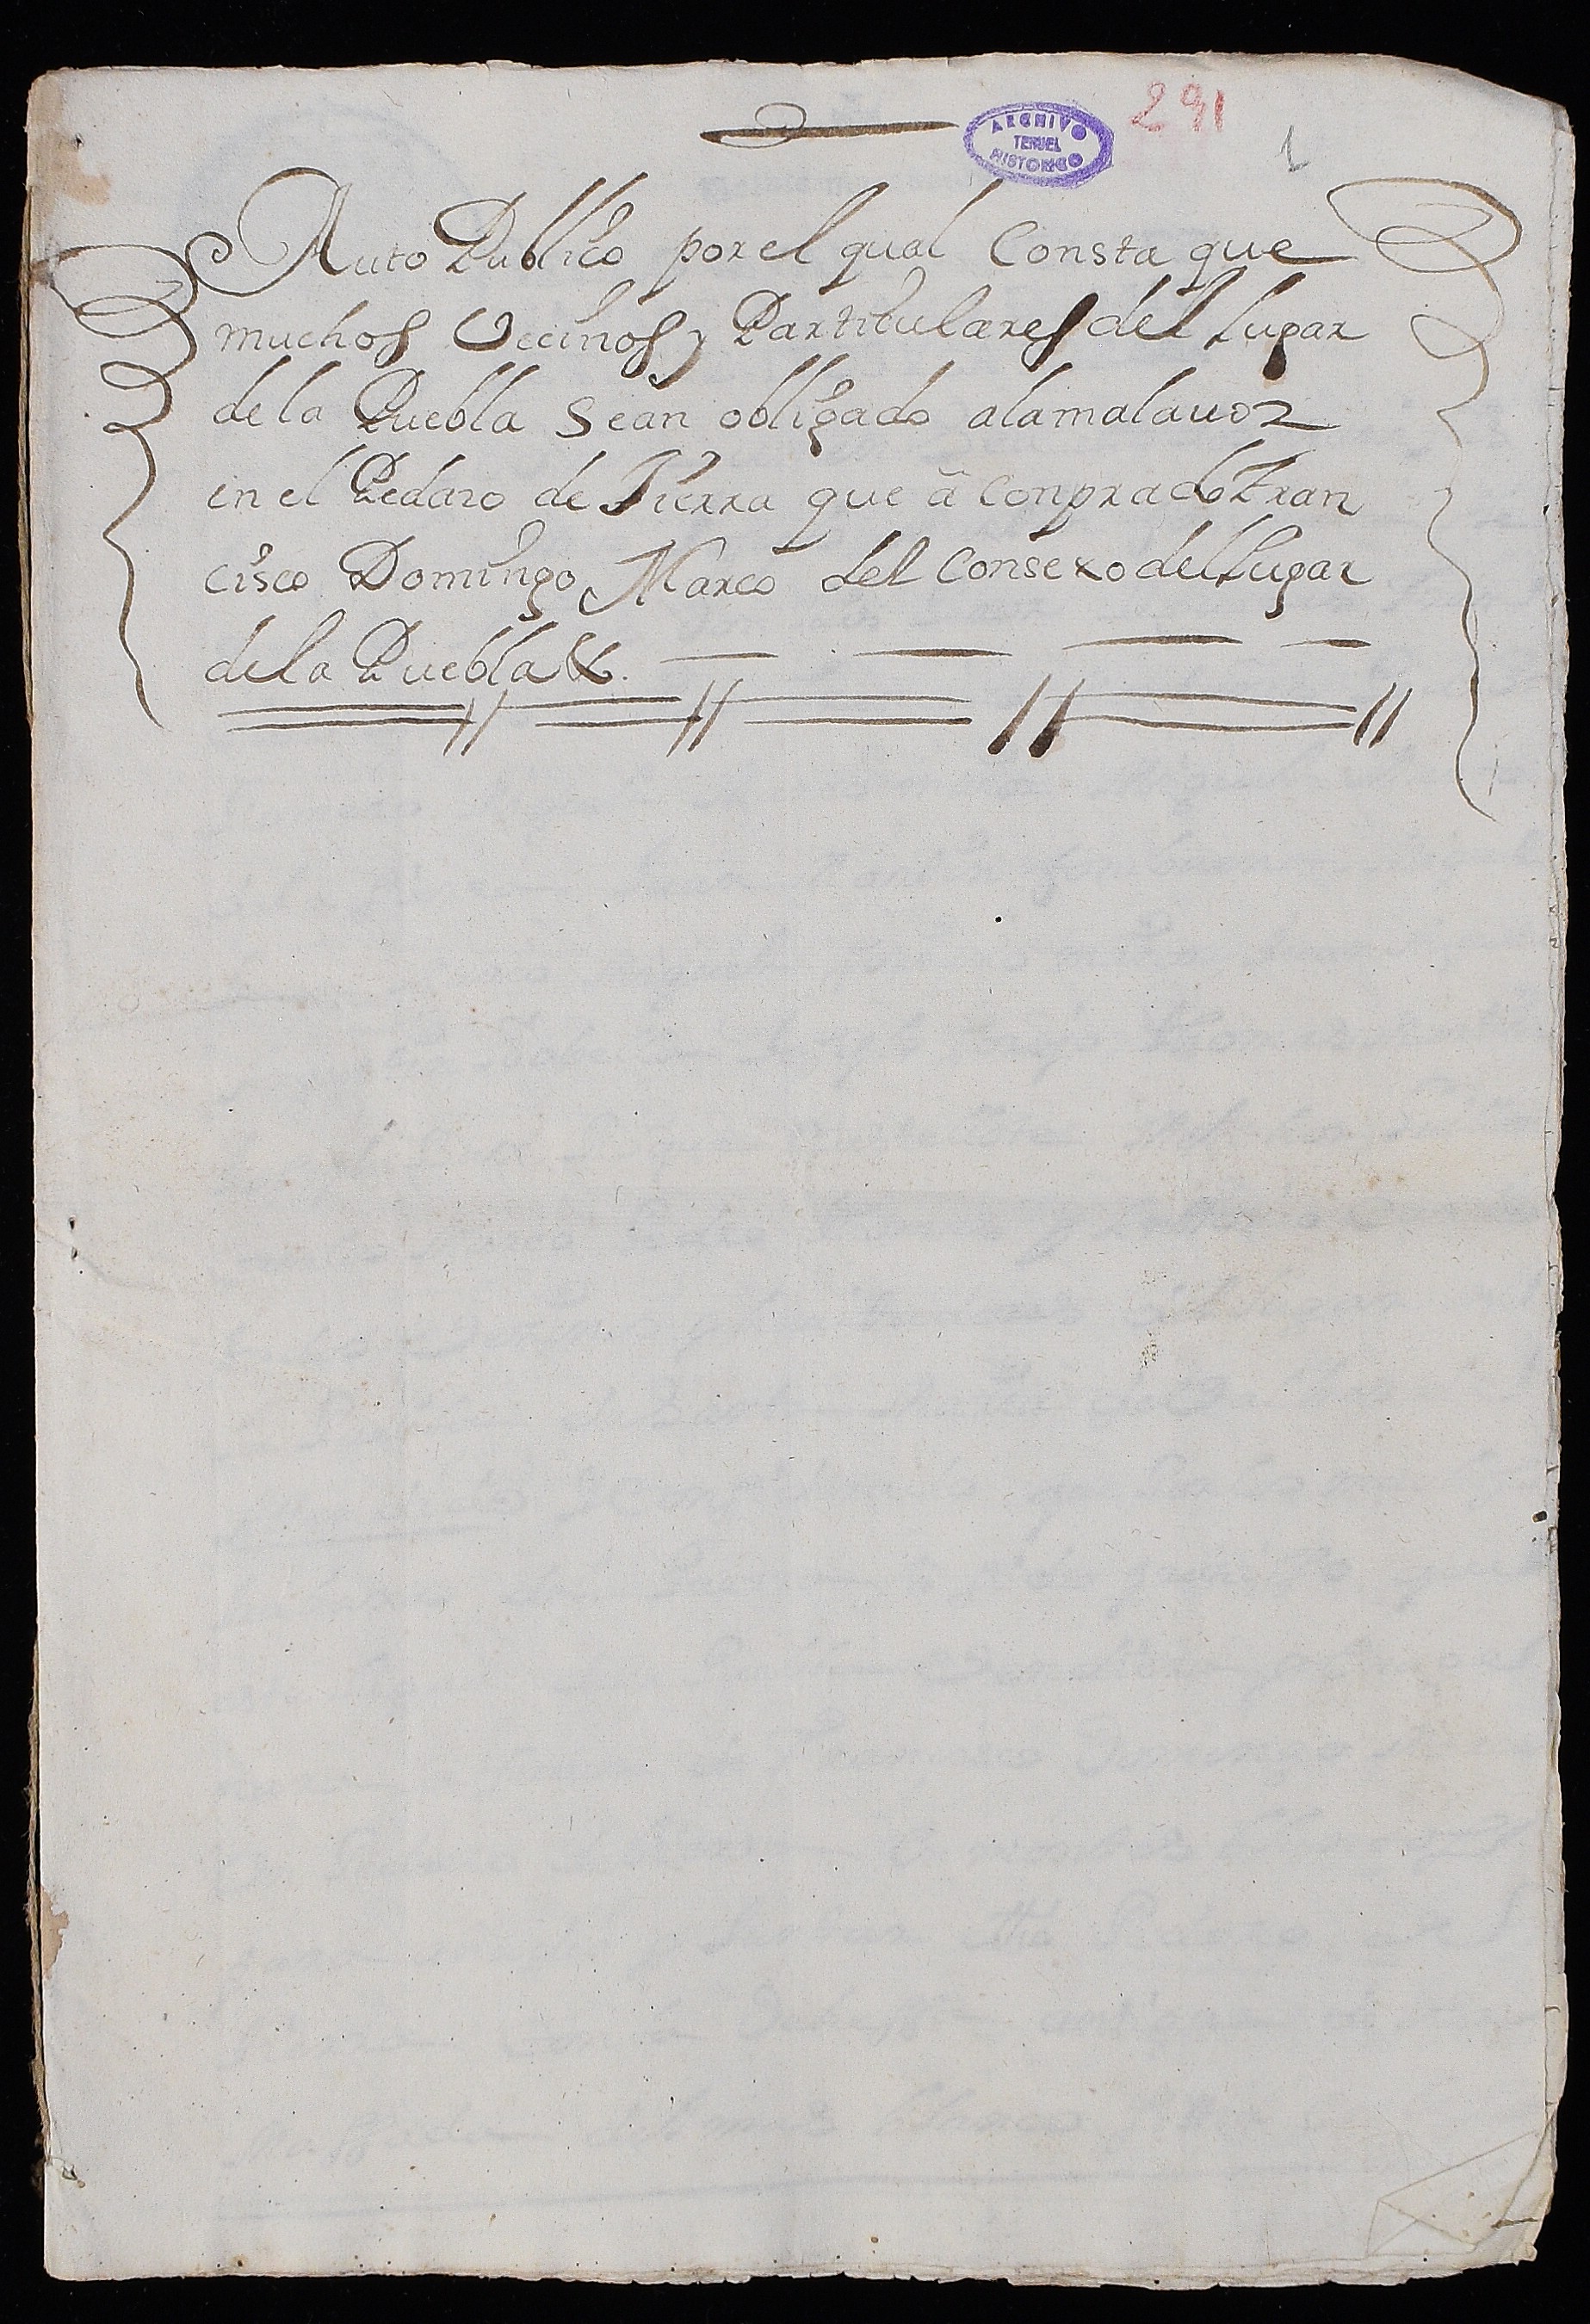 ARCHIVO
TERUEL
HISTORICO
291
1
Auto Publico por el qual Consta que
muchos Vecinos y Particulares del Lugar
de la Puebla sean obligado a la mala uoz
en el Pedazo de Tierra que â conprado Fran
cisco Domingo Marco del Consexo del Lugar
de la Puebla &.